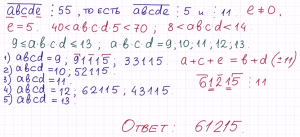 abcde ⋮ 55, то есть abcde ⋮ 5 и ⋮ 11 e ≠ 0,
e = 5. 40 < abcd·5 < 70 ; 8 < abcd < 14.
9 ≤ a·b·c·d ≤ 13 ; a·b·c·d = 9; 10; 11; 12; 13.
1) abcd = 9, 91115, 33115. a + c + e = b + d (±11)
2) abcd = 10; 52115.
3) abcd = 11 61215 ⋮ 11
4) abcd = 12, 62115, 43115.
5) abcd = 13
Ответ: 61215.